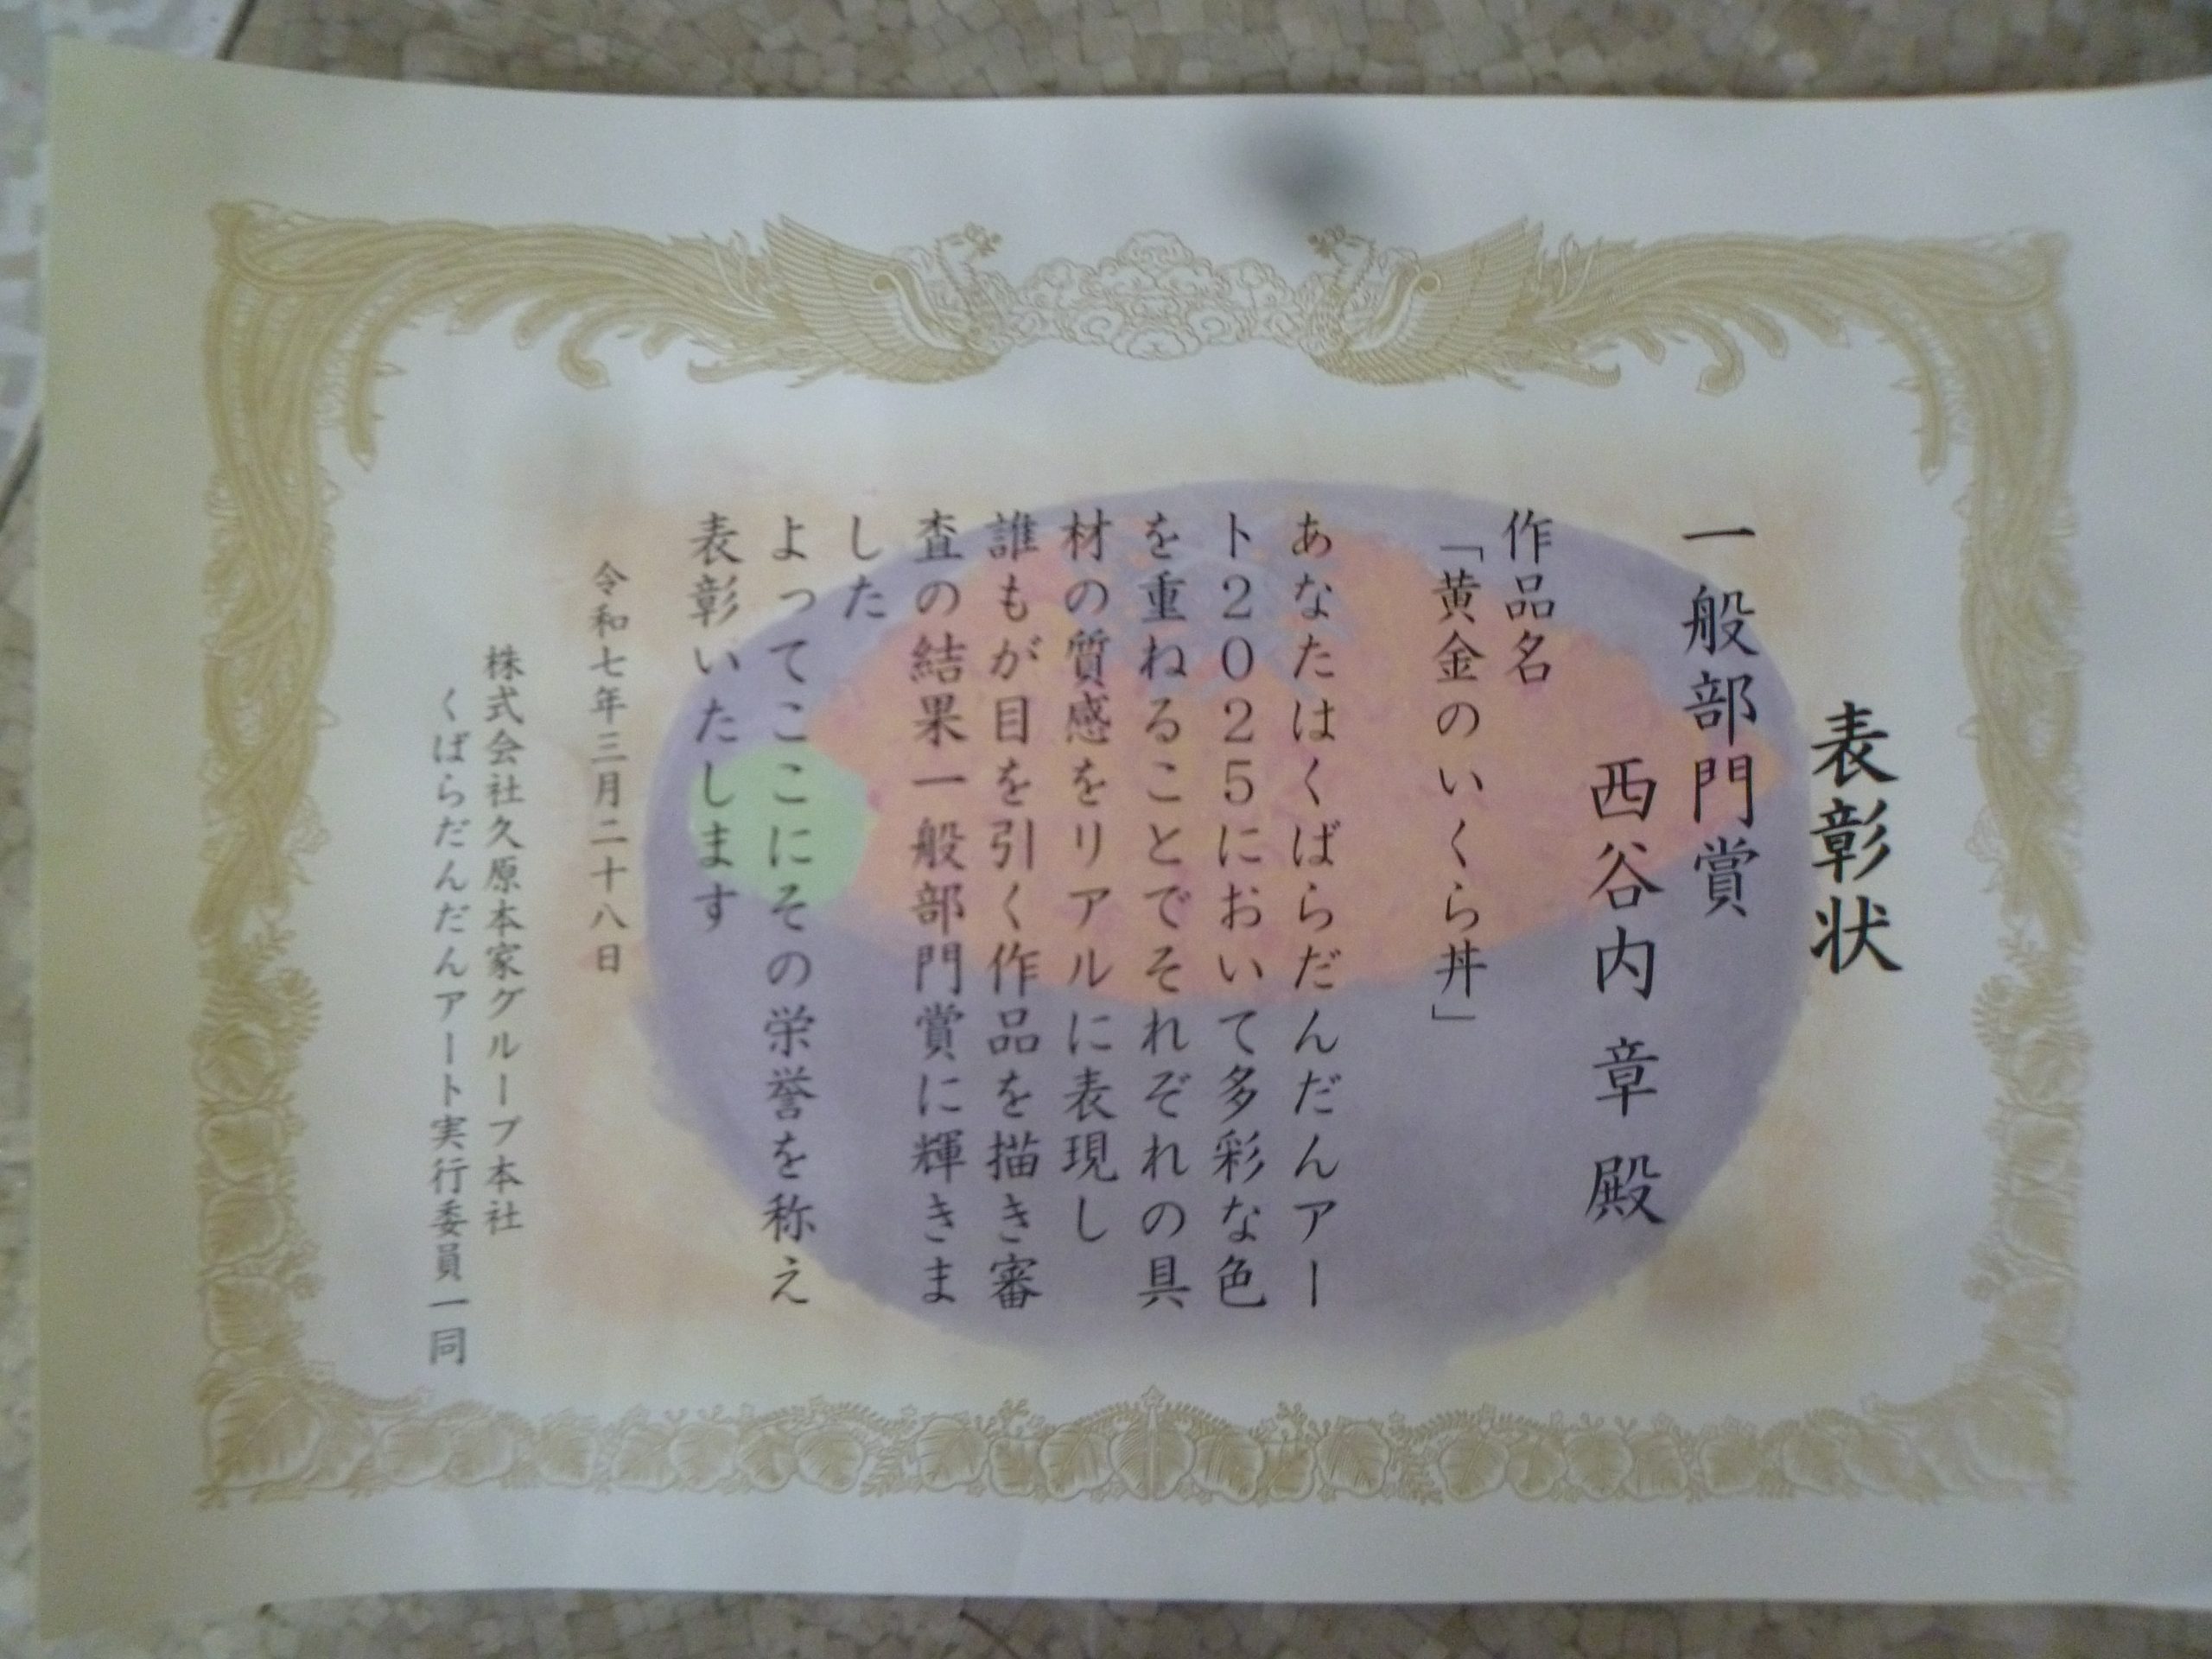 表彰状
一般部門賞
西谷内 章 殿
作品名
「黄金のいくら丼」
あなたはくばらだんだんアー
ト2025において多彩な色
を重ねることでそれぞれの具
材の質感をリアルに表現し
誰もが目を引く作品を描き審
査の結果一般部門賞に輝きま
した
よってここにその栄誉を称え
表彰いたします
令和七年三月二十八日
株式会社久原本家グループ本社
くばらだんだんアート実行委員一同